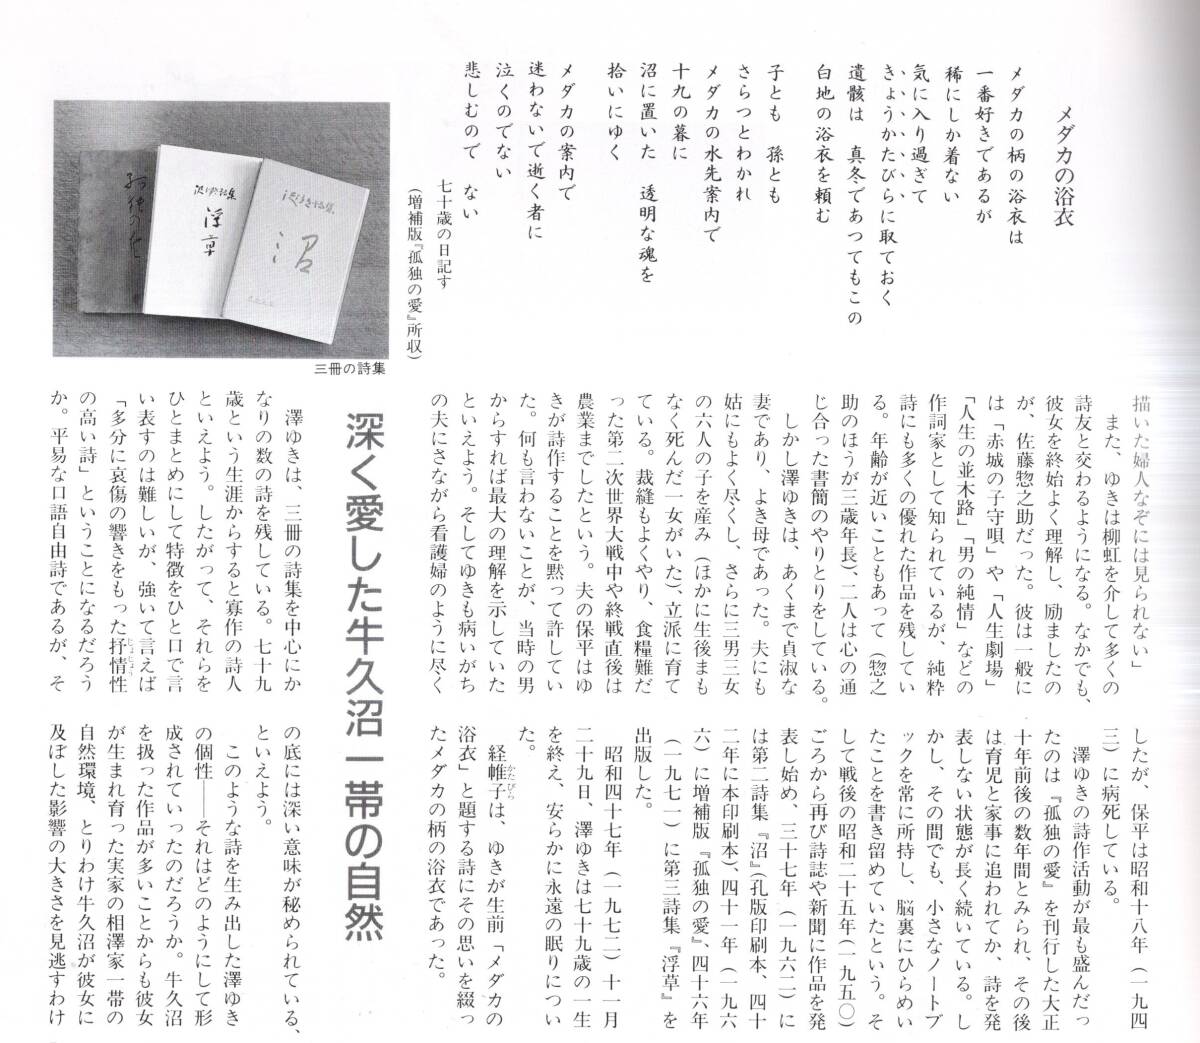 メダカの浴衣
メダカの柄の浴衣は
一番好きであるが
稀にしか着ない
気に入り過ぎて
きょうかたびらに取ておく
遺骸は　真冬であつてもこの
白地の浴衣を頼む
子とも　孫とも
さらつとわかれ
メダカの水先案内で
十九の暮に
沼に置いた　透明な魂を
拾いにゆく
メダカの案内で
迷わないで逝く者に
泣くのでない
悲しむので　ない
七十歳の日記す
（増補版『孤独の愛』所収）
沼
浮草
三冊の詩集
描いた婦人なぞには見られない」
また、ゆきは柳虹を介して多くの
詩友と交わるようになる。なかでも、
彼女を終始よく理解し、励ましたの
が、佐藤惣之助だった。彼は一般に
は「赤城の子守唄」や「人生劇場」
「人生の並木路」「男の純情」などの
作詞家として知られているが、純粋
詩にも多くの優れた作品を残してい
る。年齢が近いこともあって（惣之
助のほうが三歳年長）、二人は心の通
じ合った書簡のやりとりをしている。
しかし澤ゆきは、あくまで貞淑な
妻であり、よき母であった。夫にも
姑にもよく尽くし、さらに三男三女
の六人の子を産み（ほかに生後まも
なく死んだ一女がいた）、立派に育て
ている。裁縫もよくやり、食糧難だ
った第二次世界大戦中や終戦直後は
農業までしたという。夫の保平はゆ
きが詩作することを黙って許してい
た。何も言わないことが、当時の男
からすれば最大の理解を示していた
といえよう。そしてゆきも病いがち
の夫にさながら看護婦のように尽く
したが、保平は昭和十八年（一九四
三）に病死している。
澤ゆきの詩作活動が最も盛んだっ
たのは『孤独の愛』を刊行した大正
十年前後の数年間とみられ、その後
は育児と家事に追われてか、詩を発
表しない状態が長く続いている。し
かし、その間でも、小さなノートブ
ックを常に所持し、脳裏にひらめい
たことを書き留めていたという。そ
して戦後の昭和二十五年（一九五〇）
ごろから再び詩誌や新聞に作品を発
表し始め、三十七年（一九六二）に
は第二詩集『沼』（孔版印刷本、四十
二年に本印刷本）、四十一年（一九六
六）に増補版『孤独の愛』、四十六年
（一九七一）に第三詩集『浮草』を
出版した。
昭和四十七年（一九七二）十一月
二十九日、澤ゆきは七十九歳の一生
を終え、安らかに永遠の眠りについ
た。
経帷子かたびらは、ゆきが生前「メダカの
浴衣」と題する詩にその思いを綴っ
たメダカの柄の浴衣であった。
深く愛した牛久沼一帯の自然
澤ゆきは、三冊の詩集を中心にか
なりの数の詩を残している。七十九
歳という生涯からすると寡作の詩人
といえよう。したがって、それらを
ひとまとめにして特徴をひと口で言
い表すのは難しいが、強いて言えば
「多分に哀傷の響きをもった抒情じょじょう性
の高い詩」ということになるだろう
か。平易な口語自由詩であるが、そ
の底には深い意味が秘められている、
といえよう。
このような詩を生み出した澤ゆき
の個性――それはどのようにして形
成されていったのだろうか。牛久沼
を扱った作品が多いことからも彼女
が生まれ育った実家の相澤家一帯の
自然環境、とりわけ牛久沼が彼女に
及ぼした影響の大きさを見逃すわけ